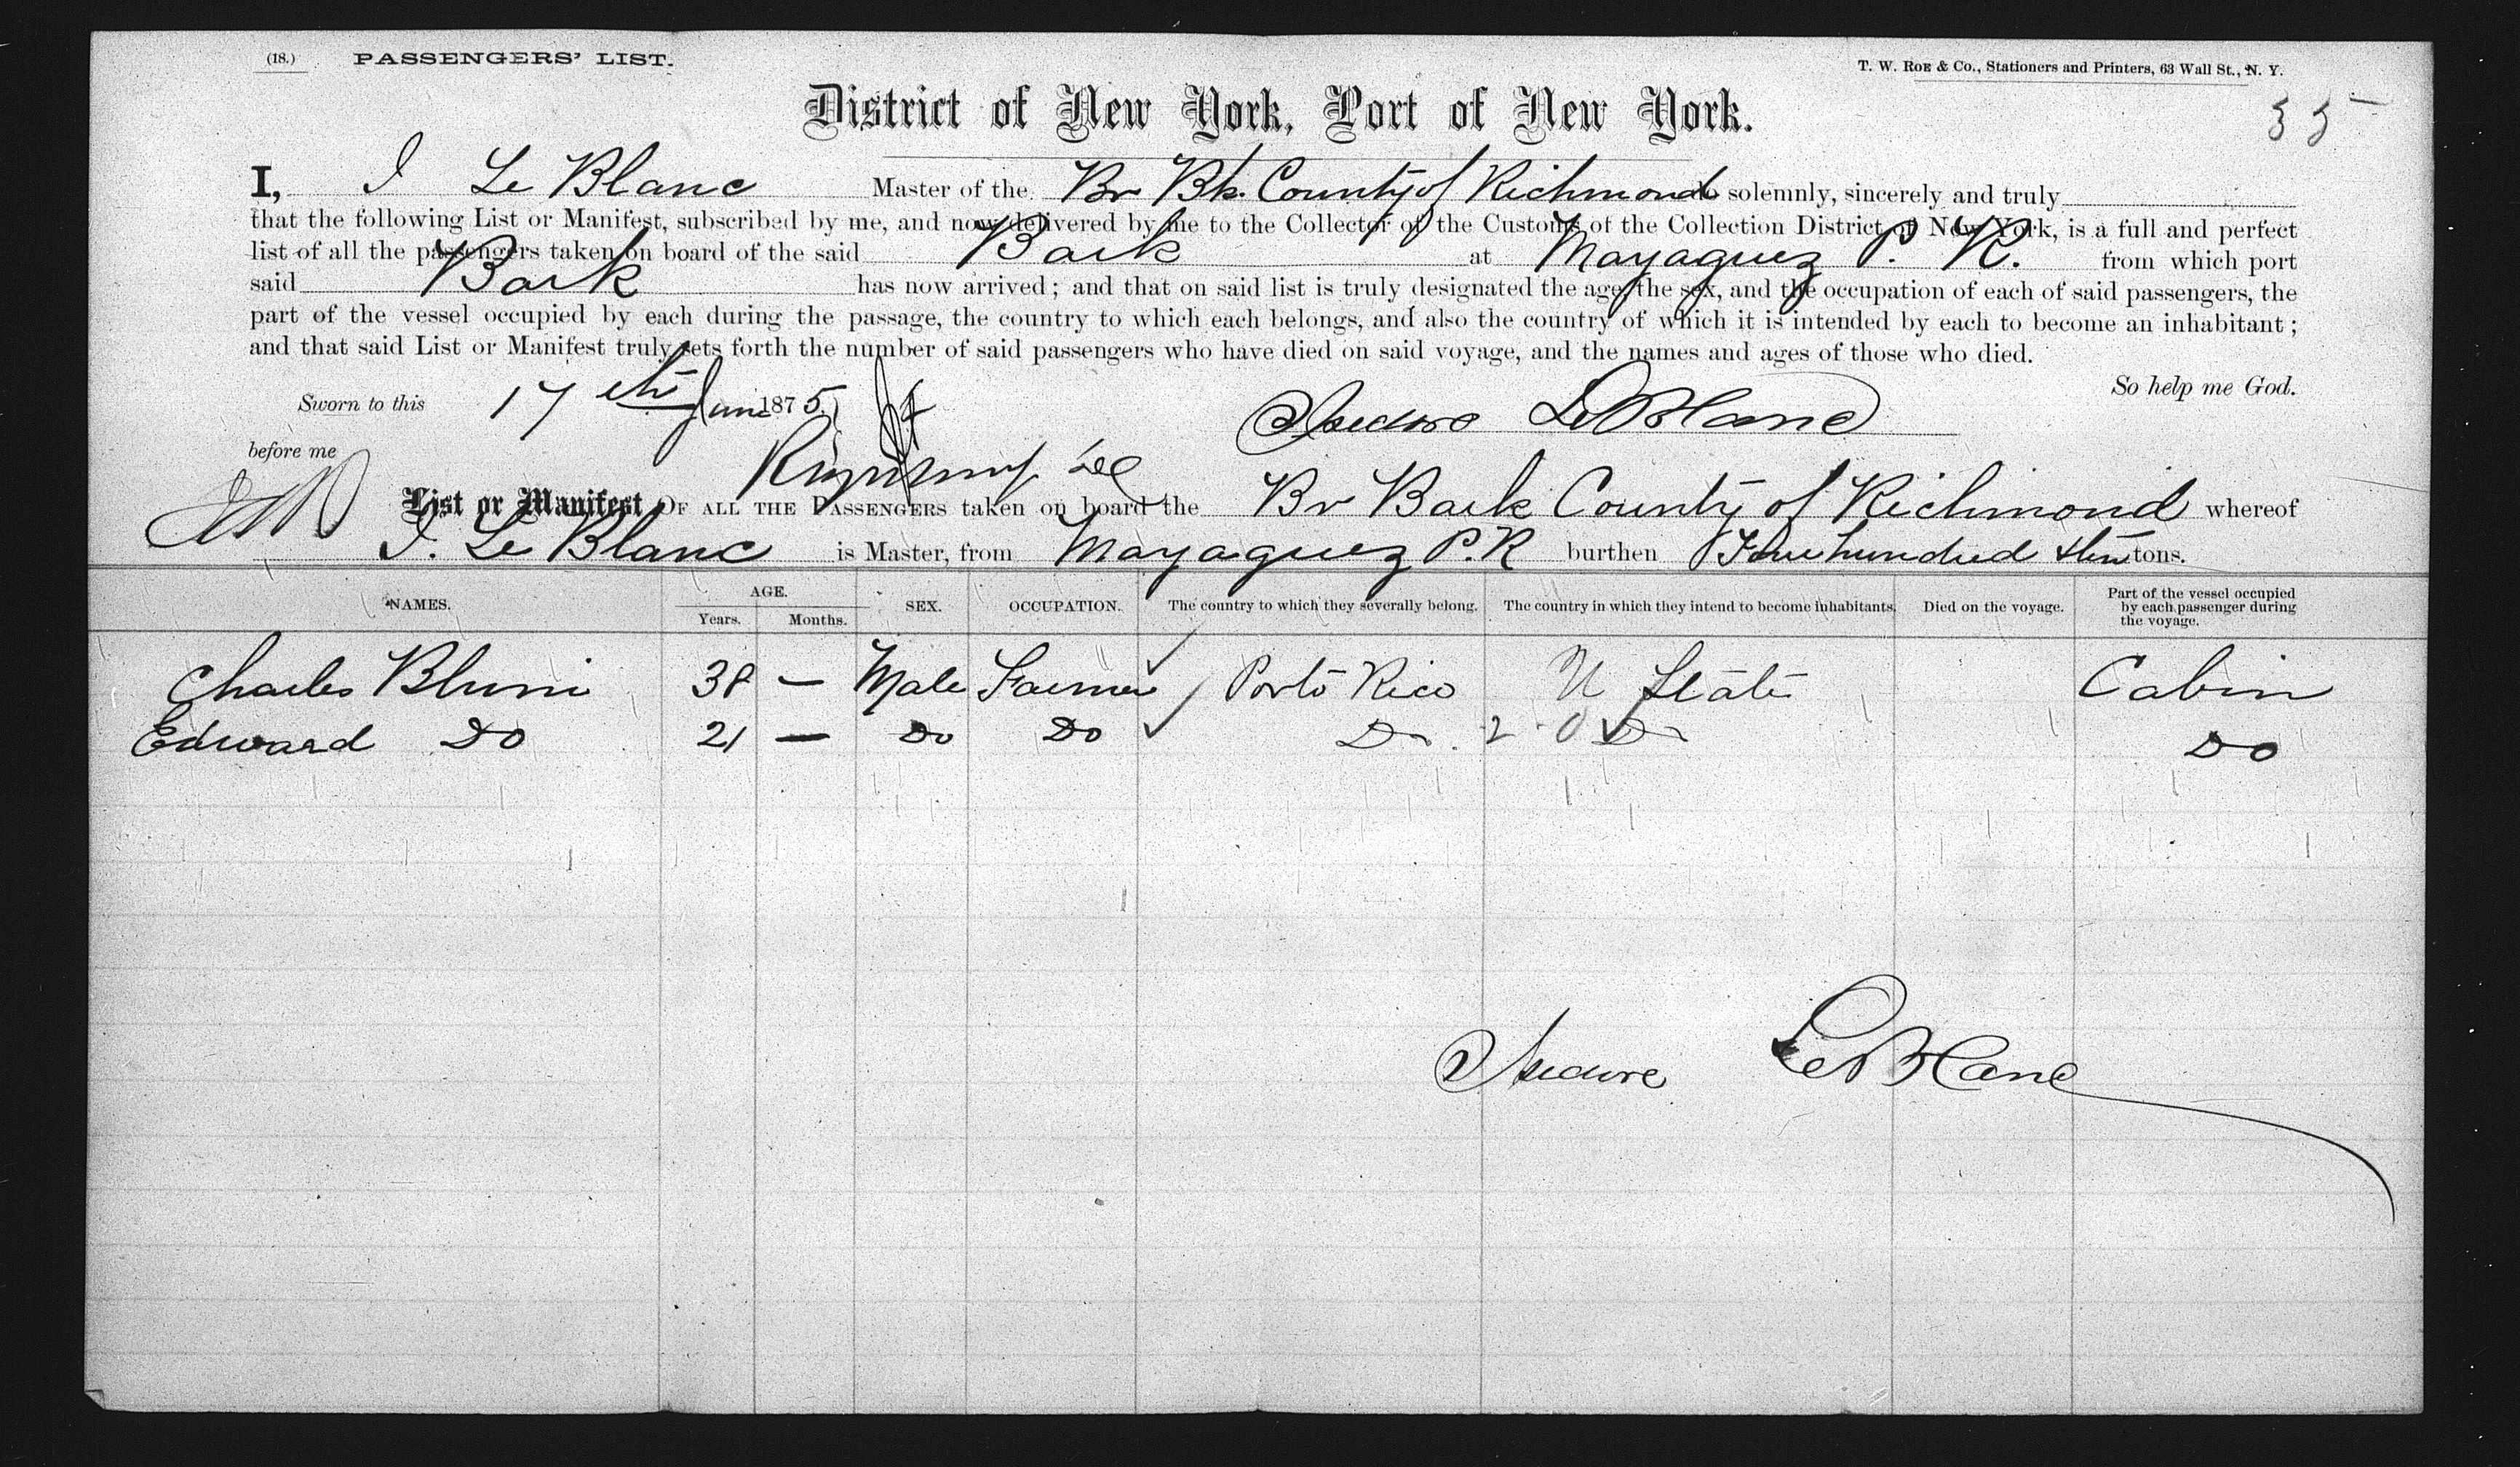 (18.) PASSENGERS' LIST. T. W. ROE & Co., Stationers and Printers, 63 Wall St., N. Y.
District of New York, Port of New York.
I, I Le Blanc Master of the Br Bk. County of Richmond do solemnly, sincerely and truly
that the following List or Manifest, subscribed by me, and now delivered by me to the Collector of the Customs of the Collection District of New York, is a full and perfect
list of all the passengers taken on board of the said Bark at Mayaguez P. R. from which port
said Bark has now arrived; and that on said list is truly designated the age, the sex, and the occupation of each of said passengers, the
part of the vessel occupied by each during the passage, the country to which each belongs, and also the country of which it is intended by each to become an inhabitant;
and that said List or Manifest truly sets forth the number of said passengers who have died on said voyage, and the names and ages of those who died.
So help me God.
Sworn to this 17th June 1875. Isidore LeBlanc
before me
List or Manifest OF ALL THE PASSENGERS taken on board the Br Bark County of Richmond whereof
I. Le Blanc is Master, from Mayaguez P.R burthen hundred tons.
NAMES. AGE. Years. Months. SEX. OCCUPATION. The country to which they severally belong. The country in which they intend to become inhabitants. Died on the voyage. Part of the vessel occupied by each passenger during the voyage.
Charles 38 — Male Farmer Porto Rico U States Cabin
Edward Do 21 — Do Do Do Do Do
Isidore LeBlanc